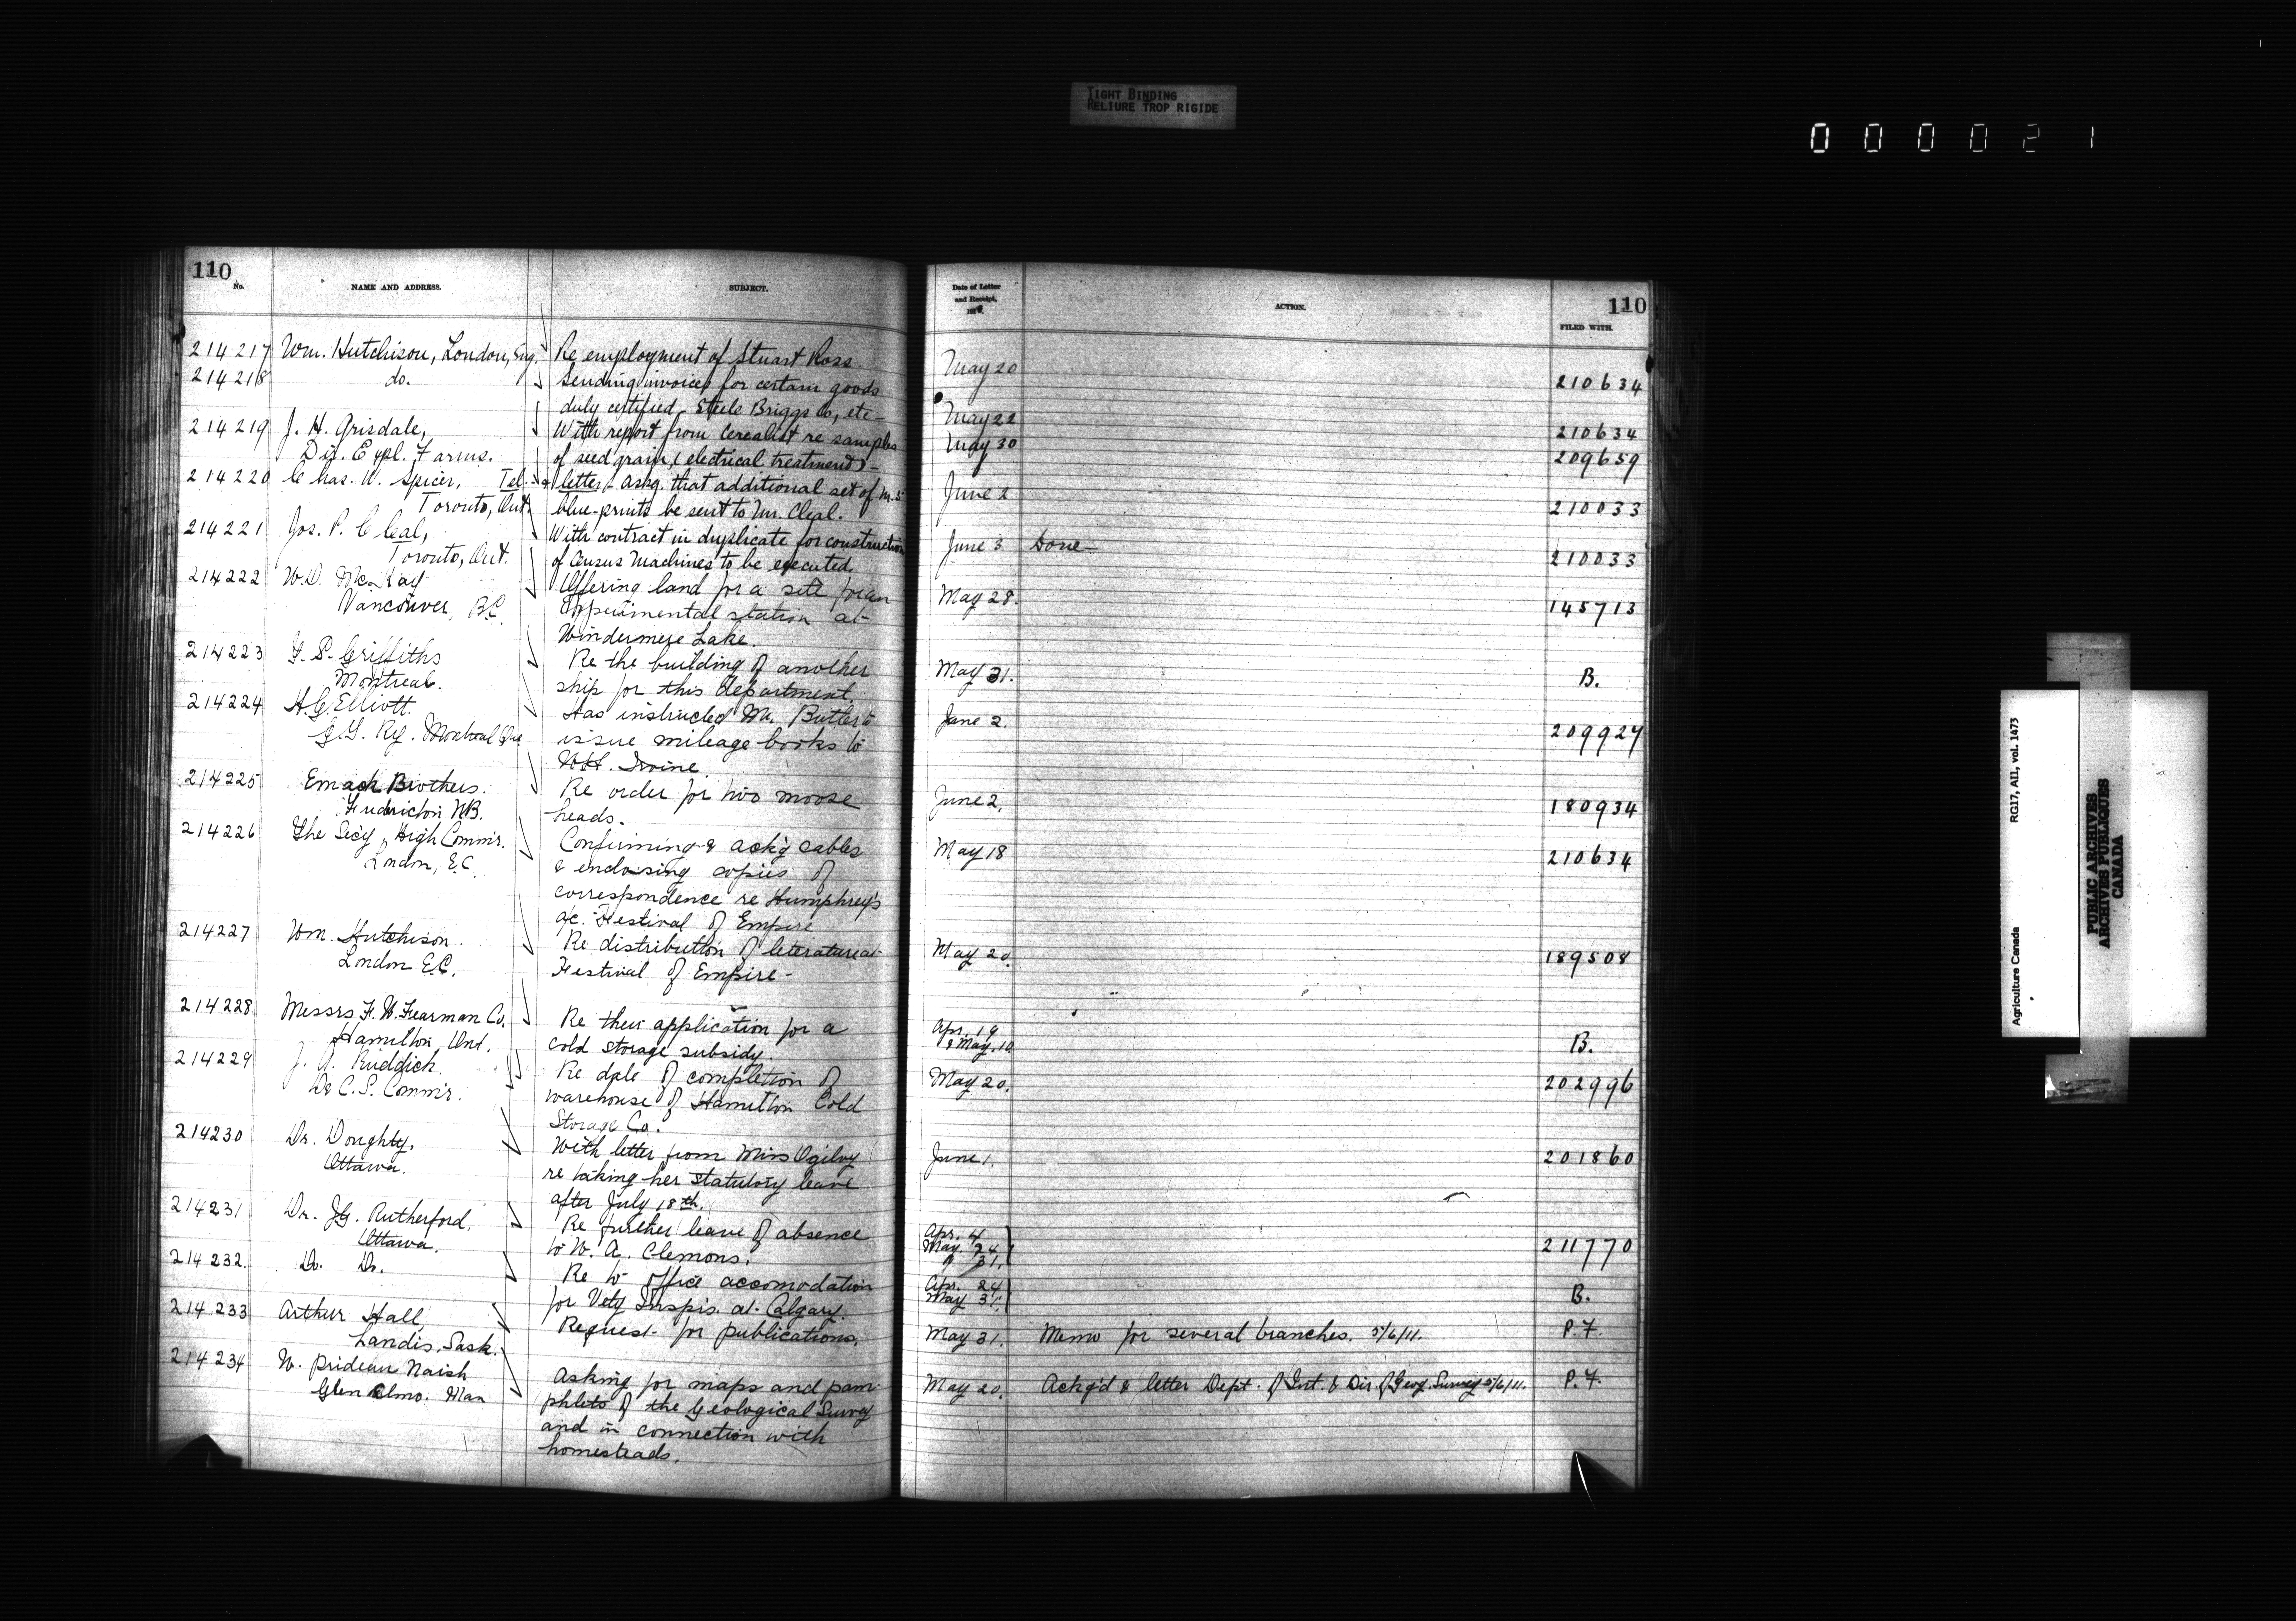 TIGHT BINDING
RELIURE TROP RIGIDE
000021
110
No.
NAME AND ADDRESS.
SUBJECT.
214217 Wm. Hutchison, London, Eng. Re employment of Stuart Ross
214218 do. Sending invoices for certain goods
duly certified, Steele Briggs Co, etc-
214219 J. H. Grisdale, With report from Cerealist re samples
Dir. Expl. Farms. of seed grain, (electrical treatment)-
214220 Chas. W. Spicer, Tel. & letter - Askg. that additional set of Mr. S
Toronto, Ont. blue-prints be sent to Mr. Cleal.
214221 Jos. P. Cleal, With contract in duplicate for construction
Toronto, Ont. of Census Machines to be executed.
214222 W.D. McKay Offering land for a site for an
Vancouver, B.C. Experimental station at
Windermere Lake.
214223 G. S. Griffiths Re the building of another
Montreal. ship for this department.
214224 H.G. Elliott. Has instructed Mr. Butler to
G.T. Ry. Montreal Que issue mileage books to
Irvine.
214225 Emack Brothers. Re order for two moose
Fredericton N.B. heads.
214226 The Sec'y, High Commr. Confirming & ackg cables
London, E.C. & enclosing copies of
correspondence re Humphrey's
a/c. Festival of Empire
214227 Wm. Hutchison. Re distribution of literature at
London E.C. Festival of Empire-
214228 Messrs F. W. Fearman Co. Re their application for a
Hamilton, Ont. cold storage subsidy.
214229 J. A. Ruddick. Re date of completion of
D & C. S. Commr. warehouse of Hamilton Cold
Storage Co.
214230 Dr. Doughty, With letter from Miss Ogilvy
Ottawa. re taking her statutory leave
after July 18th.
214231 Dr. J.G. Rutherford, Re further leave of absence
Ottawa. to W. A. Clemons.
214232. Do. Do. Re to office accomodation
for Vety Inspts. at Calgary.
214233 Arthur Hall, Request for publications.
Landis, Sask.
214234 W. Prideau Naish Asking for maps and pam-
Glen Elmo. Man phlets of the Geological Survey
and in connection with
homesteads.
Date of Letter
and Receipt,
ACTION.
110
FILED WITH.
May 20
210634
May 22 210634
May 30 209659
June 2 210033
June 3 Done- 210033
May 28. 145713
May 31. B.
June 2. 209924
June 2. 180934
May 18 210634
May 20. 189508
Apr. 19
& May. 10 B.
May 20. 202996
June 1. 201860
Apr. 4
May. 24
" 31. 211770
Apr. 24
May 31. B.
May 31. Memo for several branches. 5/6/11. P.F.
May 20. Ackg'd & letter Dept. of Int. & Dir. of Geog. Survey 5/6/11. P.F.
RG17, AI1, vol. 1473
Agriculture Canada
PUBLIC ARCHIVES
ARCHIVES PUBLIQUES
CANADA